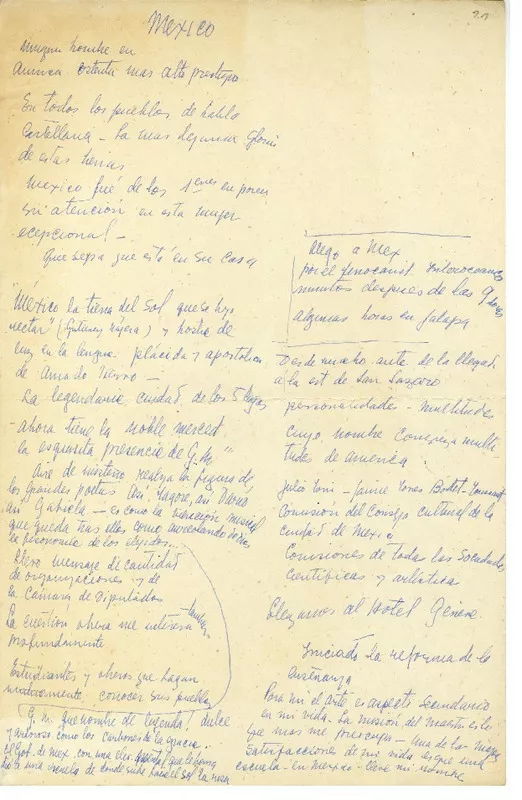 Mexico
ningun hombre en
America ostenta mas alto prestigio
En todos los pueblos de habla
Castellana - La mas legitima gloria
de estas tierras
Mexico fué de los 1eros en poner
su atención en esta mujer
ecepcional -
Que sepa que está en su casa
"México la tierra del Sol que se hizo
nectar" (Gutierrez Najera) y hostia de
luz en la lengua plácida y apostolica
de Amado Nervo -
La legendaria ciudad de los 5 lagos
- ahora tiene la noble merced
la esquisita presencia de G.M."
Aire de misterio realza la figura de
los grandes poetas Asi Tagore, asi Dario
asi Gabriela - es como la vibración musical
que queda tras ellos como aureolando
la fisonomia de los elegidos...
Llevo mensaje de cantidad
de organizaciones - y de
la Cámara de Diputados
La cuestión obrera me interesa
profundamente
Estudiantes y obreros que hagan
conocer sus pueblos
G.M. que nombre de leyenda! dulce
y armonioso como los
El Gob. de Mex. con una
una escuela de donde sube hacia el Sol la
9.1
Llego a Mex
por el ferrocarril Interoceanico
minutos despues de las 9
algunas horas en Jalapa
Desde mucho antes de la llegada
á la est de San Lazaro
personalidades - multitudes
cuyo nombre
de America
Julio - Jaime Torres Bodet -
Comision del Consejo cultural de la
ciudad de Mexico
Comisiones de todas las Sociedades
cientificas y artistica
al Hotel Genove
Iniciado la reforma de la
enseñanza
Para mi el arte es aspecto secundario
en mi vida. La misión del maestro es lo
que mas me preocupa - Una de las mayores
satisfacciones de mi vida es que una
escuela - en Mexico - lleve mi nombre